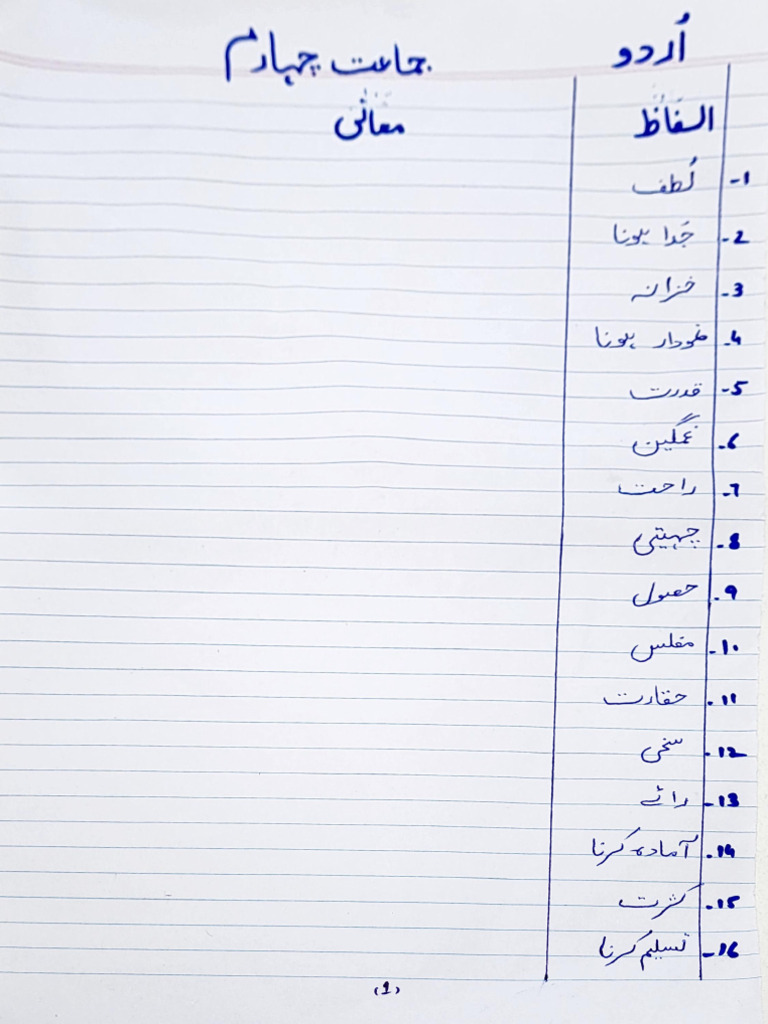 اُردو جماعت چہارم
الفاظ معانی
1- لُطف
2- جُدا ہونا
3- خزانہ
4- نمودار ہونا
5- قدرت
6- غمگین
7- راحت
8- چہیتی
9- حصول
10- مفلس
11- حقارت
12- سخی
13- رائے
14- آمادہ کرنا
15- کثرت
16- تسلیم کرنا
(1)